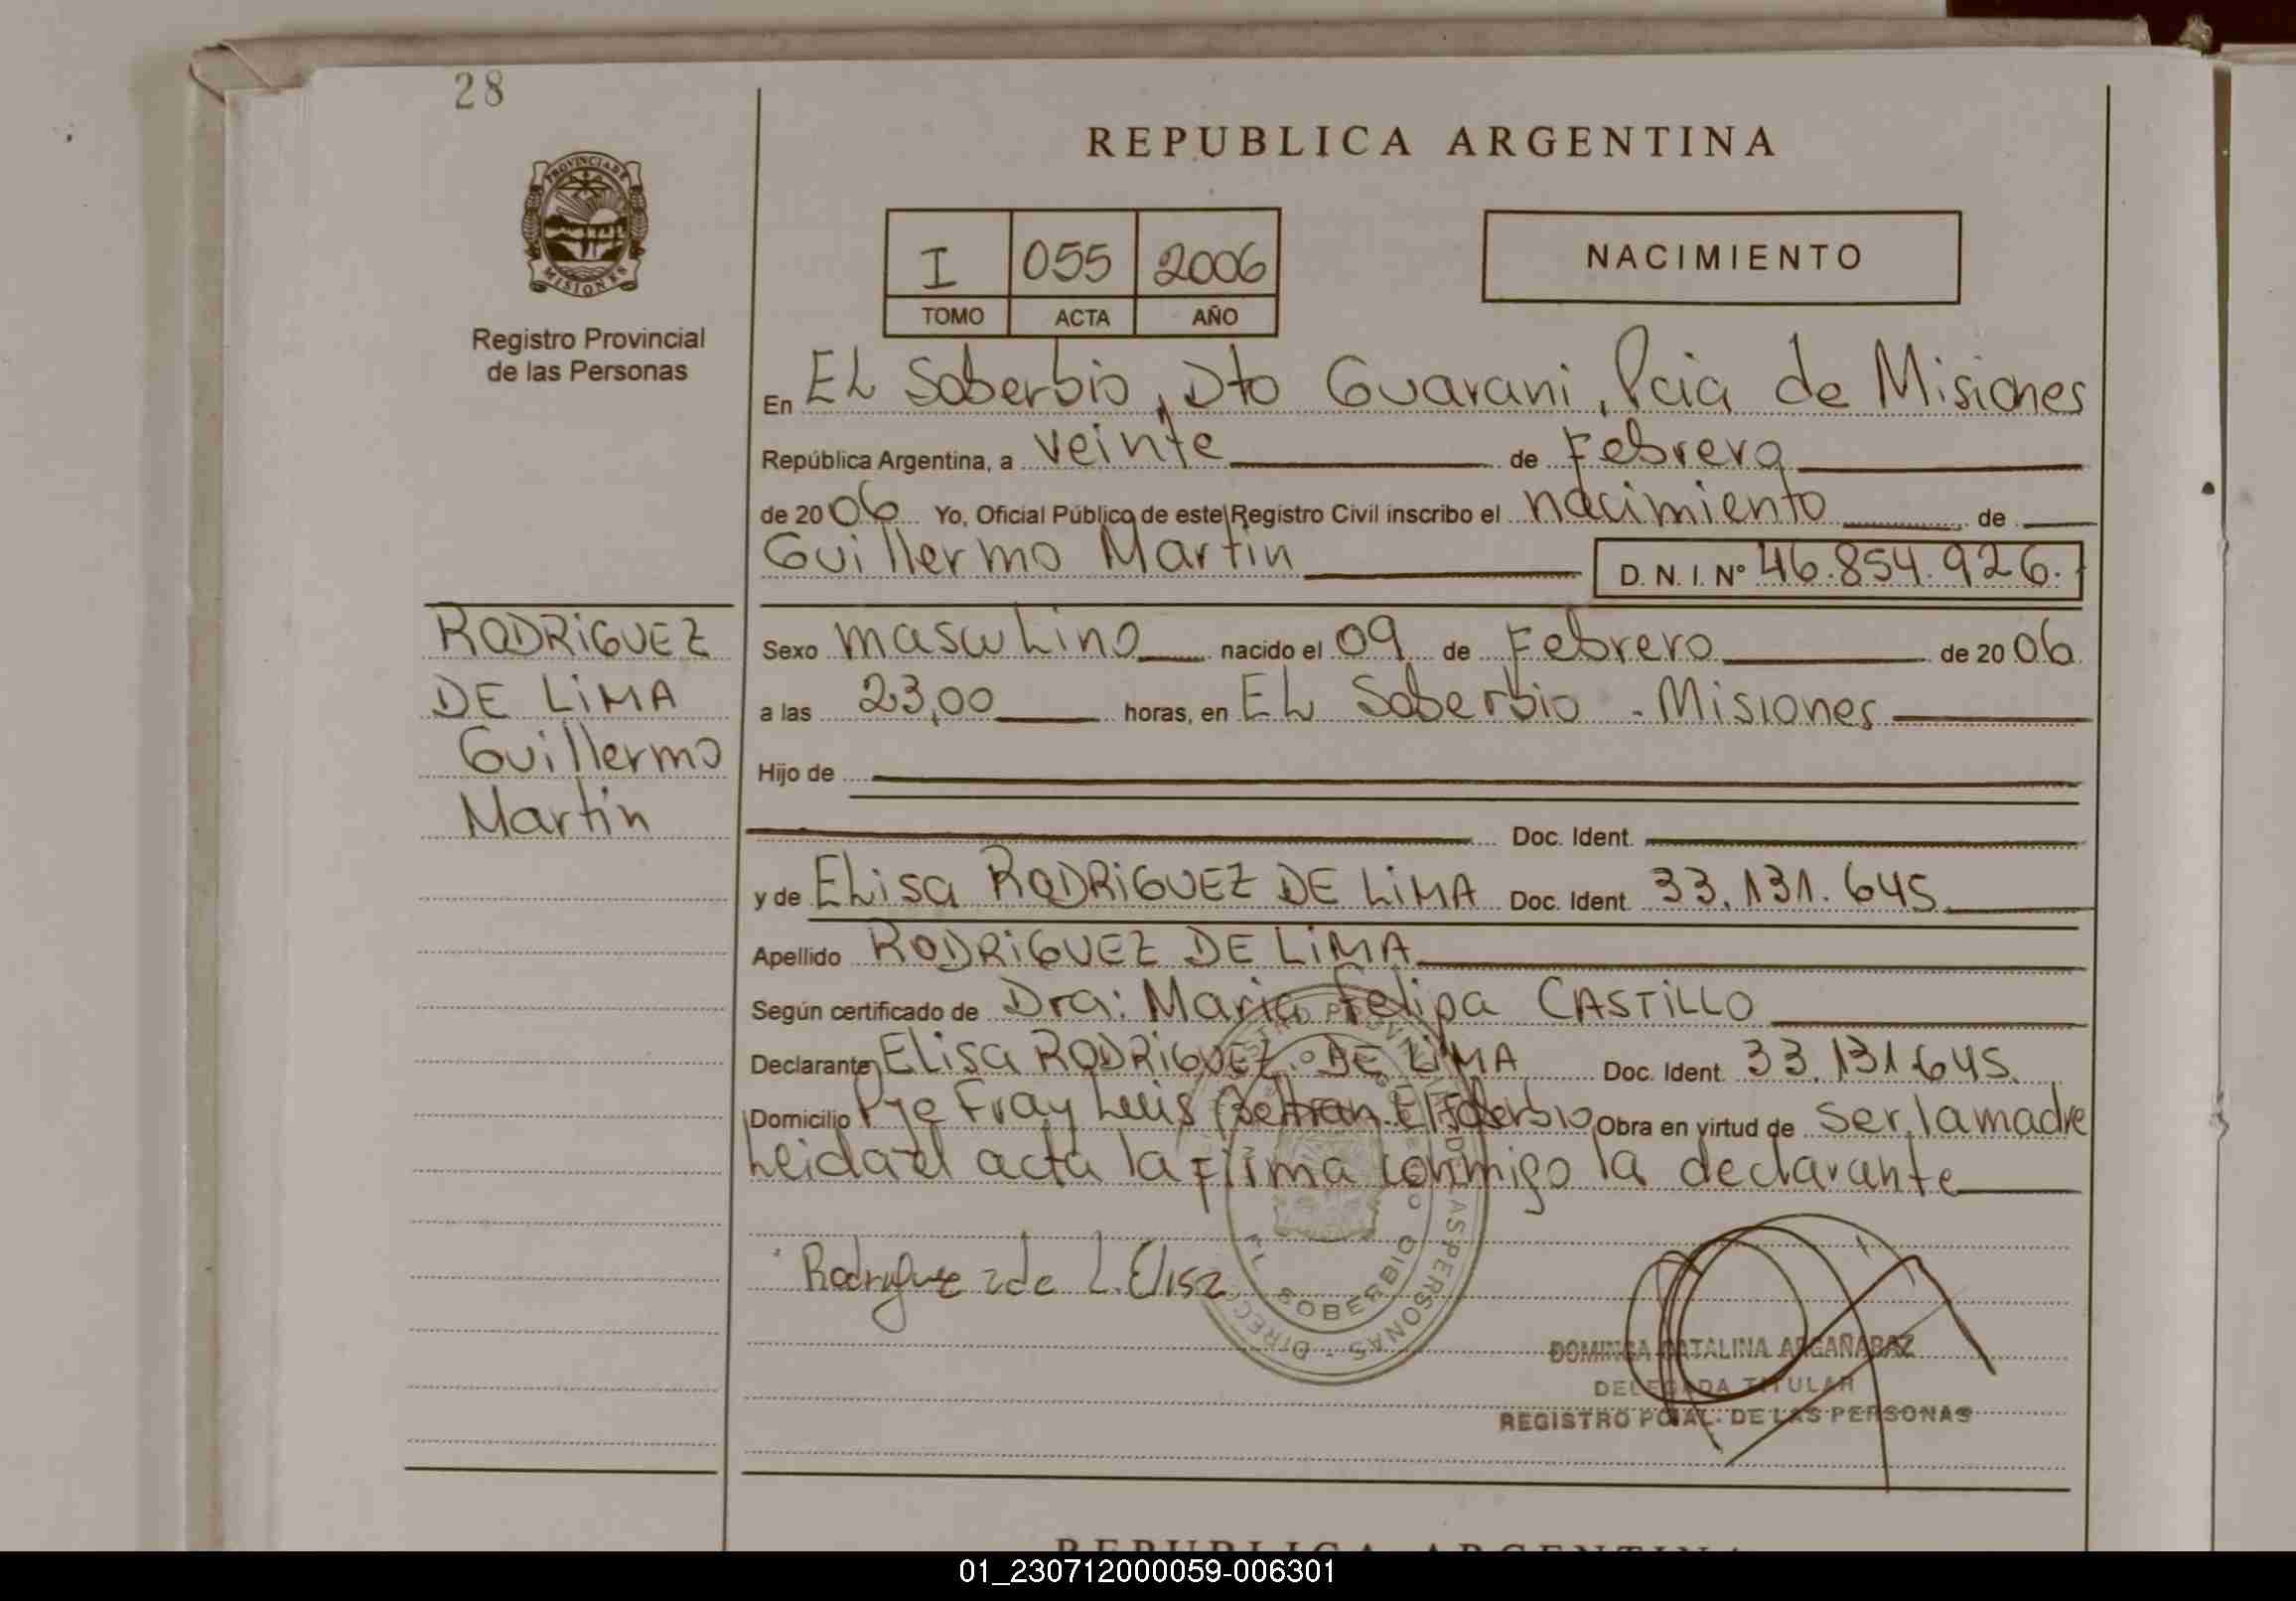 28
PROVINCIA DE
MISIONES
Registro Provincial
de las Personas
REPUBLICA ARGENTINA
I 055 2006
TOMO ACTA AÑO
NACIMIENTO
En EL Soberbio, Dto Guarani, Pcia de Misiones
República Argentina, a veinte de Febrero
de 2006 Yo, Oficial Público de este Registro Civil inscribo el nacimiento de
Guillermo Martin D. N. I. Nº 46.854.926.
RODRiGUEZ
DE LiMA
Guillermo
Martin
Sexo masculino nacido el 09 de Febrero de 2006
a las 23,00 horas, en EL Soberbio - Misiones
Hijo de
Doc. Ident.
y de ELisa RODRiGUEZ DE LiMA Doc. Ident. 33.131.645
Apellido RODRiGUEZ DE LiMA
Según certificado de Dra: Maria Felipa CASTiLLO
Declarante ELisa RODRiGUEZ DE LiMA Doc. Ident. 33.131.645.
Domicilio Pje Fray Luis Beltran. El Soberbio Obra en virtud de ser la madre
Leida el acta la firma conmigo la declarante
Rodriguez de L. Elisa
EL SOBERBIO
DOMINGA CATALINA ARGAÑARAZ
DELEGADA TITULAR
REGISTRO PCIAL. DE LAS PERSONAS
REPUBLICA ARGENTINA
01_230712000059-006301